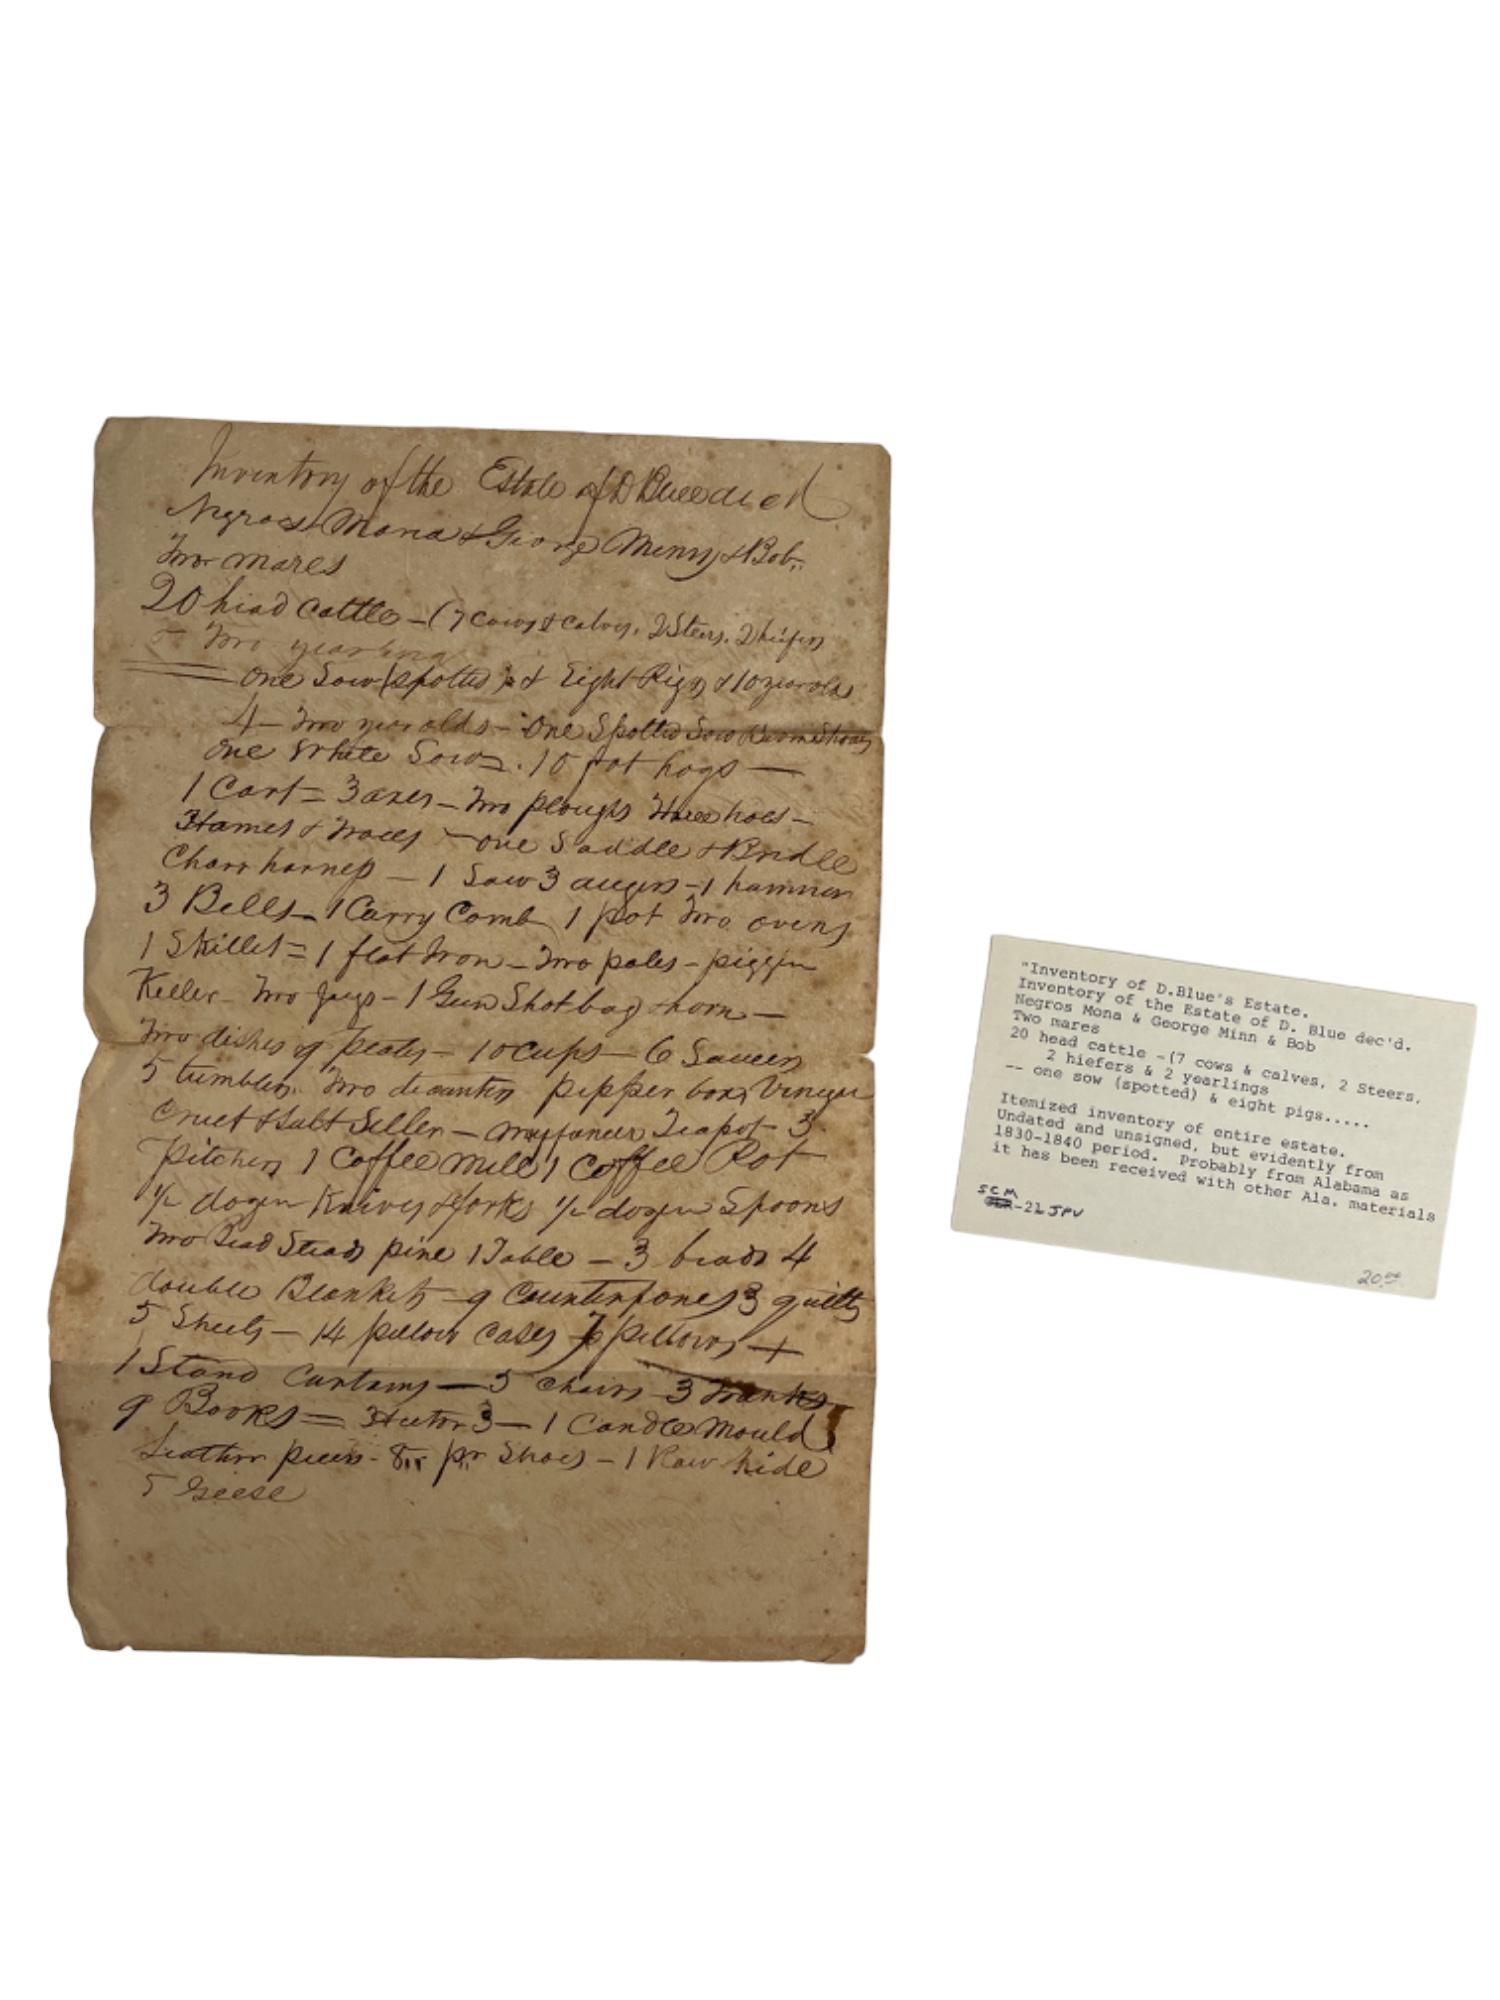 Inventory of the Estate of D Blue dec d
Negroes Mona & George Minny & Bob
Two mares
20 head Cattle - (7 Cows & Calves, 2 Steers, 2 heifers
Two yearling
one Sow (spotted) & Eight Pigs & 10 year olds
4 - Two year olds - One Spotted Sow
one White Sow - 10 fat hogs -
1 Cart = 3 axes - Two ploughs Three hoes -
Hames & Traces - one Saddle & Bridle
Chair harness - 1 Saw 3 augers - 1 hammer
3 Bells - 1 Carry Comb 1 pot Two ovens
1 Skillet = 1 flat Iron - Two pales - piggin
Keller - Two Jugs - 1 Gun Shot bag & horn -
Two dishes 9 plates - 10 Cups - 6 Saucers
5 tumblers Two decanters pepper box, Vinegar
Cruet & Salt Seller - Teapot - 3
Pitchers 1 Coffee Mill 1 Coffee Pot
1/2 dozen Knives & forks 1/2 dozen Spoons
Two Bead Steads pine 1 Table - 3 beads 4
double Blankets - 9 Counterpones 3 quilts
5 Sheets - 14 pillow Cases 7 pillows
1 Stand Curtains - 5 Chairs 3 Trunks
9 Books = - 1 Candle Mould
Leather pieces - 8 pr Shoes - 1 Raw hide
5 Geese
"Inventory of D.Blue's Estate.
Inventory of the Estate of D. Blue dec'd.
Negros Mona & George Minn & Bob
Two mares
20 head cattle -(7 cows & calves, 2 Steers,
2 hiefers & 2 yearlings
-- one sow (spotted) & eight pigs.....
Itemized inventory of entire estate.
Undated and unsigned, but evidently from
1830-1840 period. Probably from Alabama as
it has been received with other Ala. materials
SCM
-21 JPV
20.00